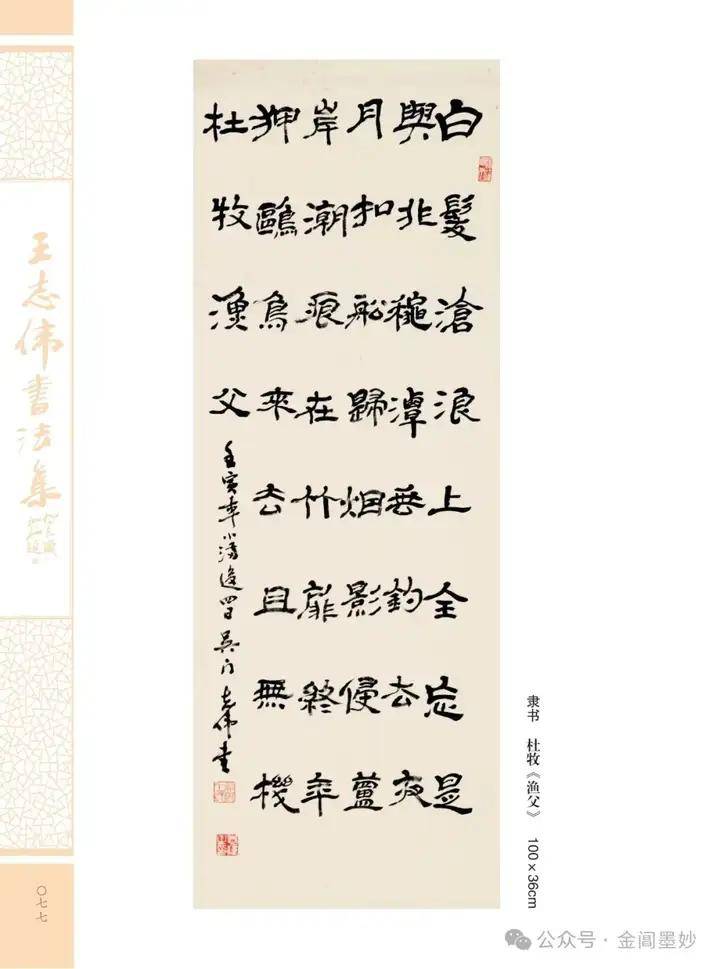 白髮滄浪上全忘是
與非穐潭垂釣去夜
月扣船歸烟影侵蘆
岸潮痕在竹扉終年
狎鷗鳥來去且無機
杜牧漁父
壬寅年小滿後四日吴门志伟书
隶书 杜牧《渔父》 100×36cm
王志伟書法集
〇七七
公众号·金阊墨妙